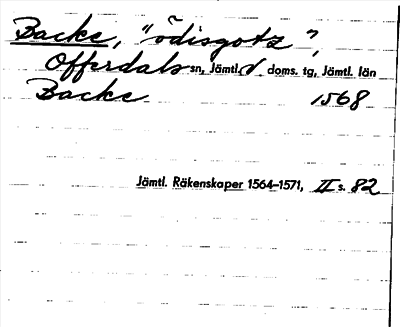 Backe, "ödisgotz",
Offerdals sn, Jämtl. doms. tg, Jämtl. län
Backe 1568
Jämtl. Räkenskaper 1564–1571, II s. 82